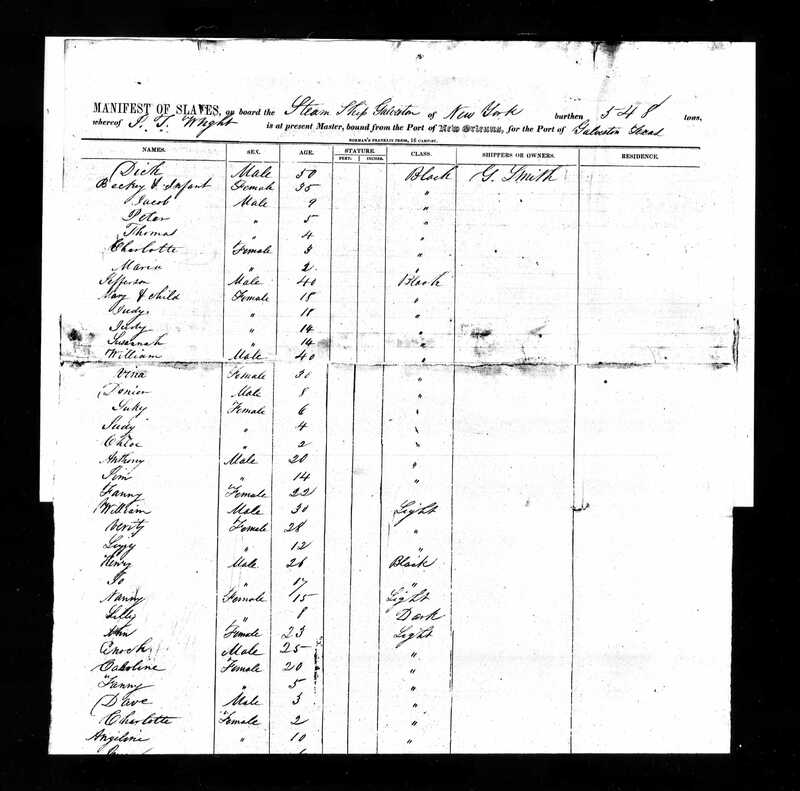 MANIFEST OF SLAVES, on board the Steam Ship Galveston of New York burthen 548 tons,
whereof P. T. Wright is at present Master, bound from the Port of New Orleans, for the Port of Galveston Texas
NORMAN'S FRANKLIN PRESS, 16 CAMP-ST.
NAMES. SEX. AGE. STATURE. CLASS. SHIPPERS OR OWNERS. RESIDENCE.
FEET. INCHES.
Dick Male 50 Black G. Smith
Beckey & Infant Female 35 "
Jacob Male 9 "
Peter " 5 "
Thomas " 4 "
Charlotte Female 3 "
Maria " 2 "
Jefferson Male 40 Black
Mary & Child Female 18 "
Judy " 18 "
Judy " 14 "
Susannah " 14 "
William Male 40 "
Vina Female 30 "
Male 8 "
Suky Female 6 "
Judy " 4 "
Chloe " 2 "
Anthony Male 20 "
Jim " 14 "
Fanny Female 22 "
William Male 30 Light
Verity Female 28 "
Lizzy " 12 "
Henry Male 26 Black
Jo " 17 "
Nanny Female 15 Light
Lilly " 8 Dark
Ann Female 23 Light
Enoch Male 25 "
Caroline Female 20 "
Fanny " 5 "
Dave Male 3 "
Charlotte Female 2 "
Angeline " 10 "